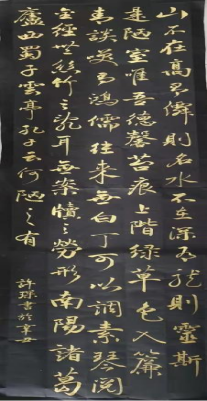 山不在高有僊則名水不在深有龍則靈斯
是陋室唯吾德馨苔痕上階綠草色入簾
青談笑有鴻儒往來無白丁可以調素琴閱
金經無絲竹之亂耳無案牘之勞形南陽諸葛
廬西蜀子雲亭孔子云何陋之有
許琛書於辛丑